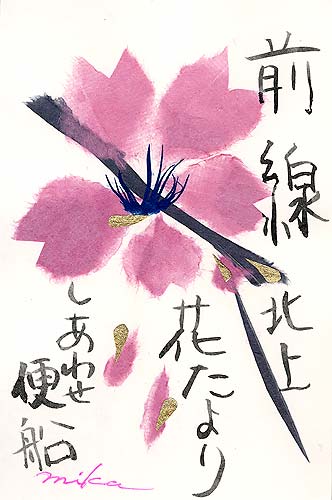 前線
北上
花たより
しあわせ
便船
mika